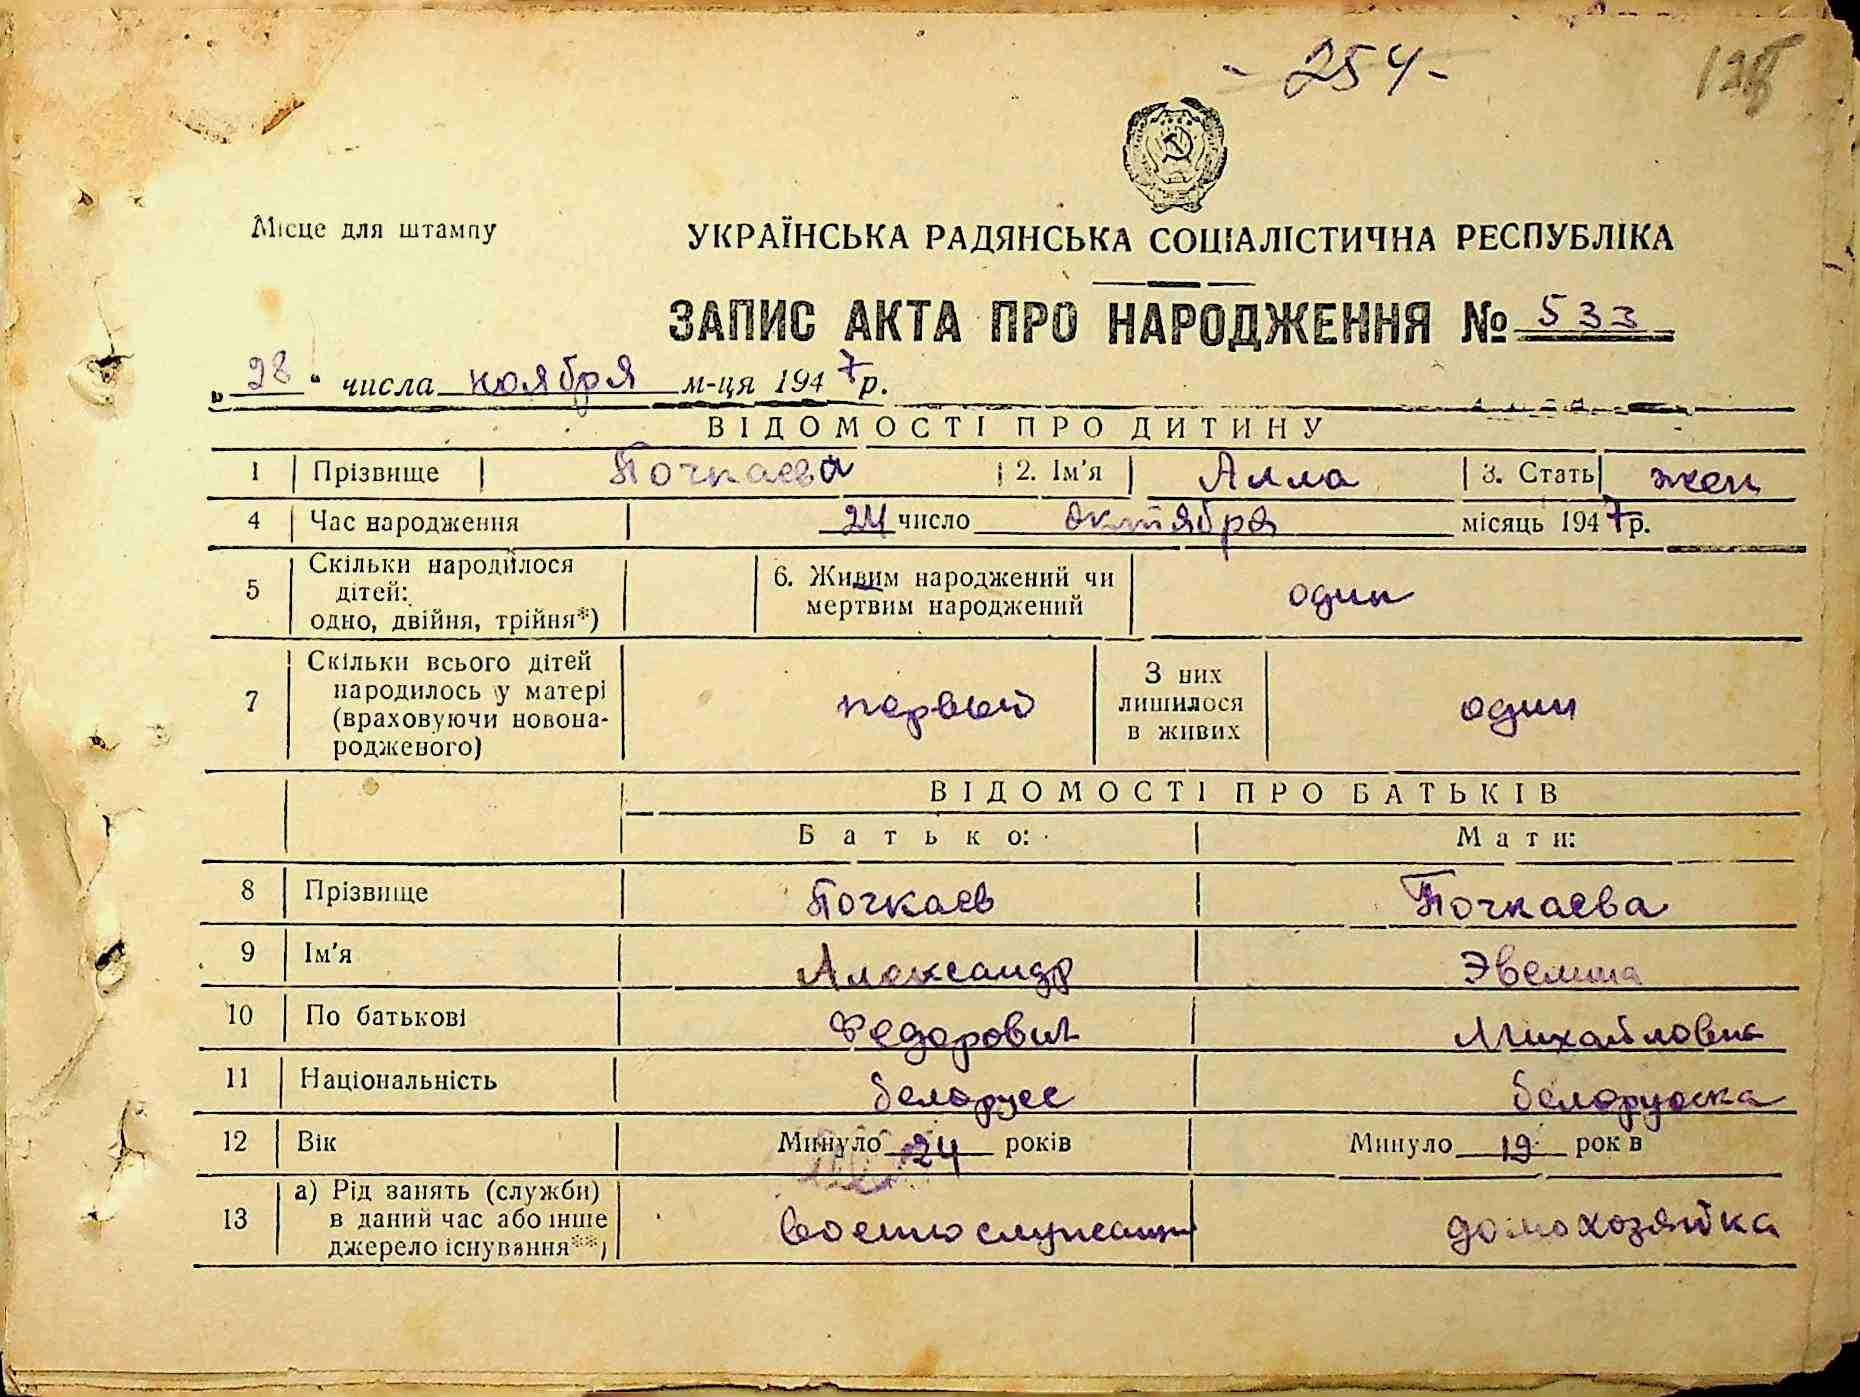 - 254 -
128
Місце для штампу
УКРАЇНСЬКА РАДЯНСЬКА СОЦІАЛІСТИЧНА РЕСПУБЛІКА
ЗАПИС АКТА ПРО НАРОДЖЕННЯ № 533
„28“ числа ноября м-ця 1947 р.
ВІДОМОСТІ ПРО ДИТИНУ
1 Прізвище Почкаева 2. Ім'я Алла 3. Стать жен
4 Час народження 24 число октября місяць 1947 р.
5 Скільки народилося дітей: одно, двійня, трійня*) 6. Живим народжений чи мертвим народжений один
7 Скільки всього дітей народилось у матері (враховуючи новонародженого) первый З них лишилося в живих один
ВІДОМОСТІ ПРО БАТЬКІВ
Батько: Мати:
8 Прізвище Почкаев Почкаева
9 Ім'я Александр Эвелина
10 По батькові Федорович Михайловна
11 Національність белорусс белоруска
12 Вік Минуло 24 років Минуло 19 рок в
13 а) Рід занять (служби) в даний час або інше джерело існування**) военнослужащий домохозяйка